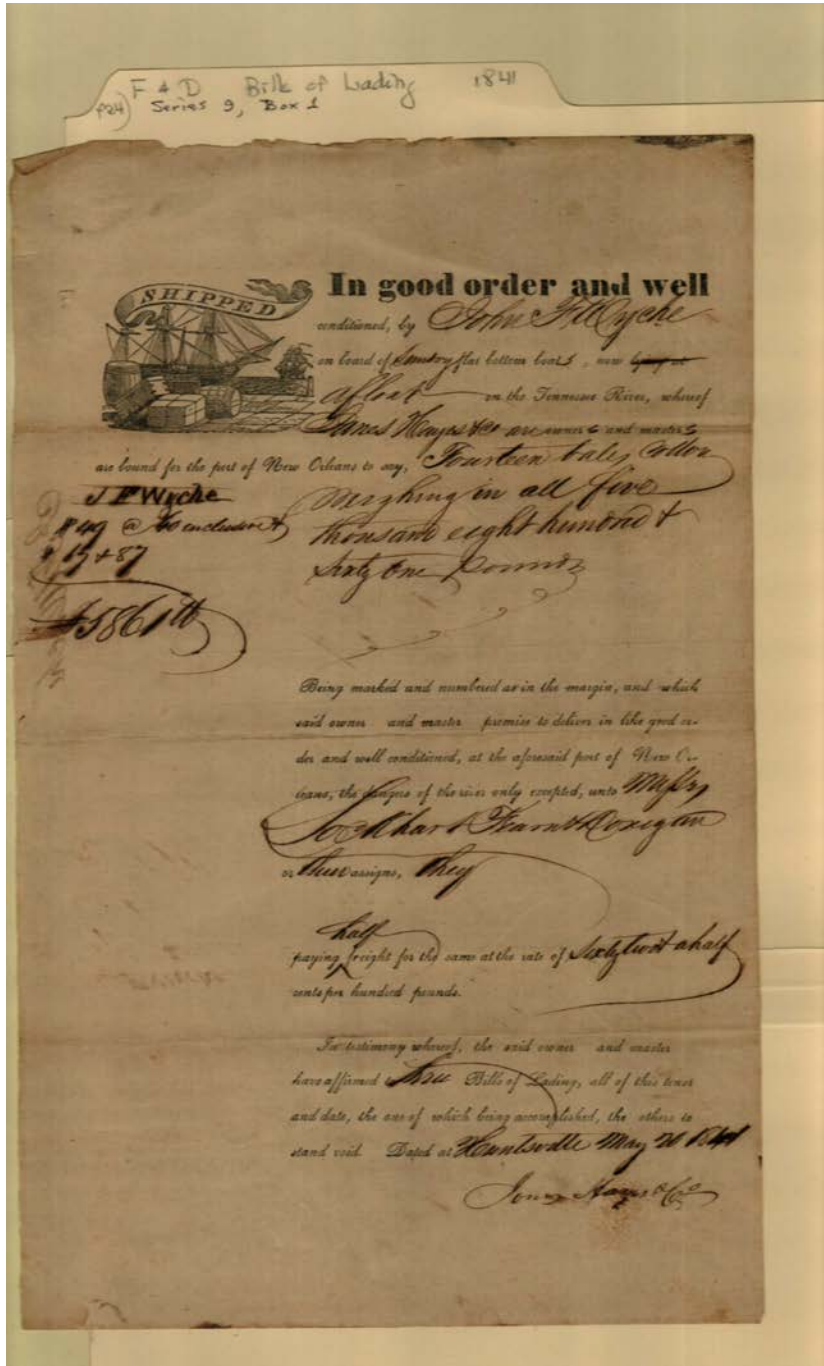 F & D Bills of Lading 1841
Series 9, Box 1
SHIPPED
In good order and well
conditioned, by John F Wyche
on board of Sundry flat bottom boats, now
afloat on the Tennessee River, whereof
Hayes & Co are owners and masters
are bound for the port of New Orleans to say, Fourteen bales Cotton
J F Wyche
weighing in all five
# 49 @ 60 inclusive &
thousand eight hundred &
17 + 87
sixty one pounds
5861 lb
Being marked and numbered as in the margin, and which
said owner and master promise to deliver in like good or-
der and well conditioned, at the aforesaid port of New Or-
leans, the dangers of the river only excepted, unto Messrs
Lockhart Fearn & Donegan
or their assigns, they
half
paying freight for the same at the rate of sixty two & a half
cents per hundred pounds.
In testimony whereof, the said owner and master
have affirmed to three Bills of Lading, all of this tenor
and date, the one of which being accomplished, the others to
stand void. Dated at Huntsville May 20 1841
Hayes & Co